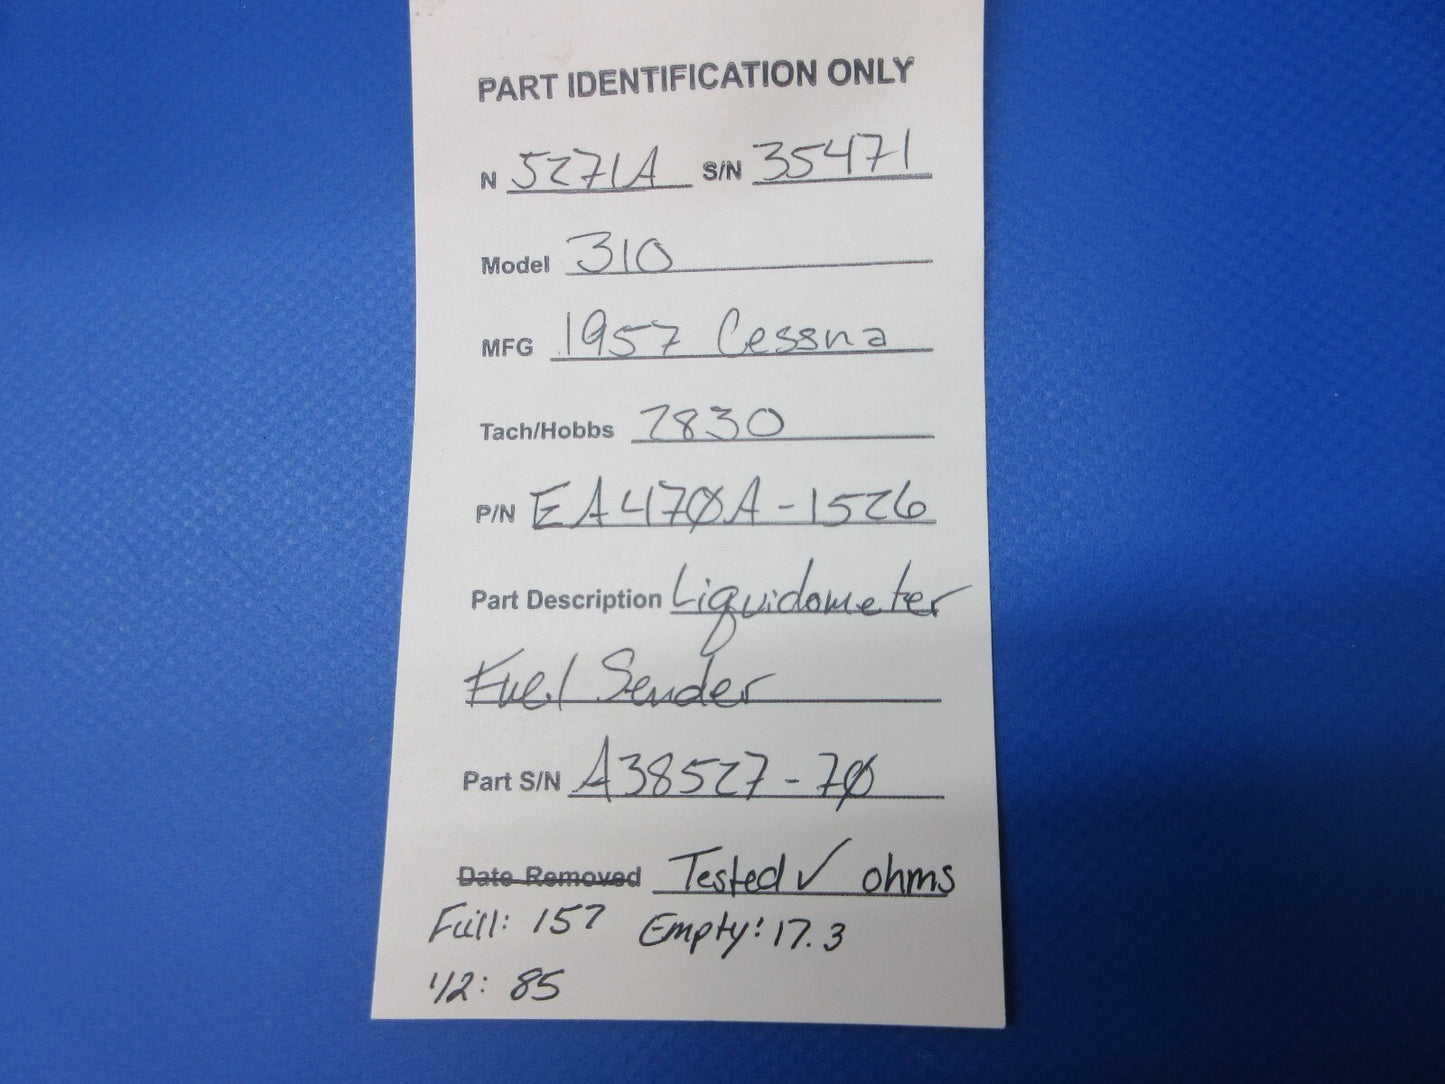 PART IDENTIFICATION ONLY
N 5271A S/N 35471
Model 310
MFG 1957 Cessna
Tach/Hobbs 7830
P/N EA470A-1526
Part Description Liquidometer
Fuel Sender
Part S/N A38527-70
Date Removed Tested ✓ ohms
Full: 157 Empty: 17.3
1/2: 85